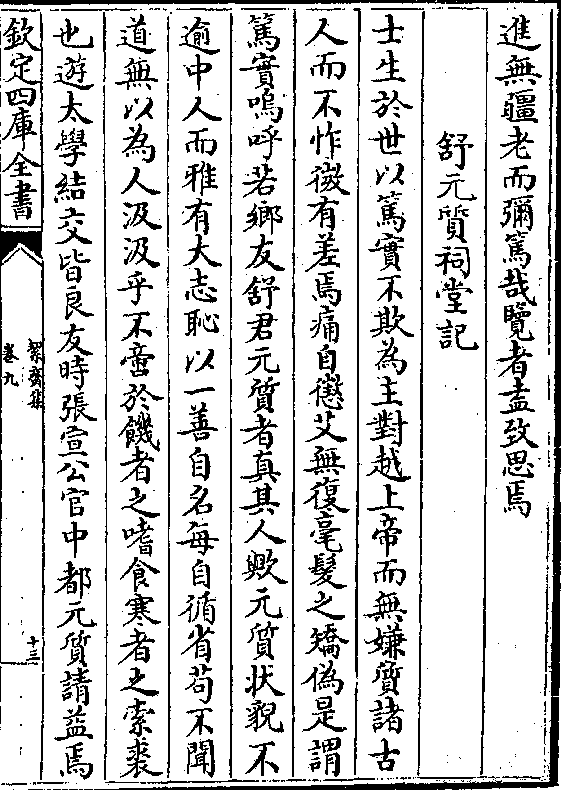 進無疆老而彌篤哉覽者盍致思焉
舒元質祠堂記
士生於世以篤實不欺為主對越上帝而無嫌質諸古
人而不怍微有差焉痛自懲艾無復毫髮之矯偽是謂
篤實嗚呼若鄉友舒君元質者真其人歟元質状貌不
逾中人而雅有大志恥以一善自名每自循省苟不聞
道無以為人汲汲乎不啻於饑者之嗜食寒者之索裘
也遊太學結交皆良友時張宣公官中都元質請益焉
欽定四庫全書
絜齋集
卷九
十三